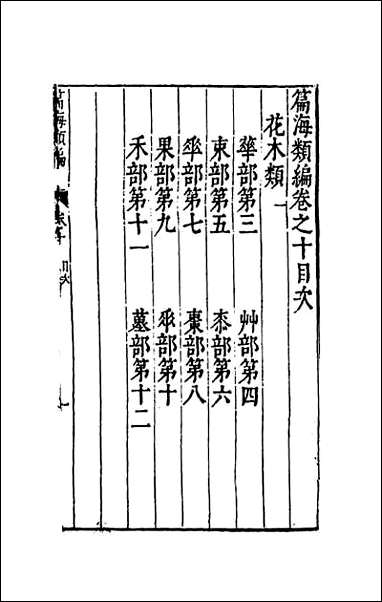 篇海類編卷之十目次
花木類一
華部第三 艸部第四
東部第五 部第六
部第七 部第八
果部第九 部第十
禾部第十一 部第十二
篇海類編
目次